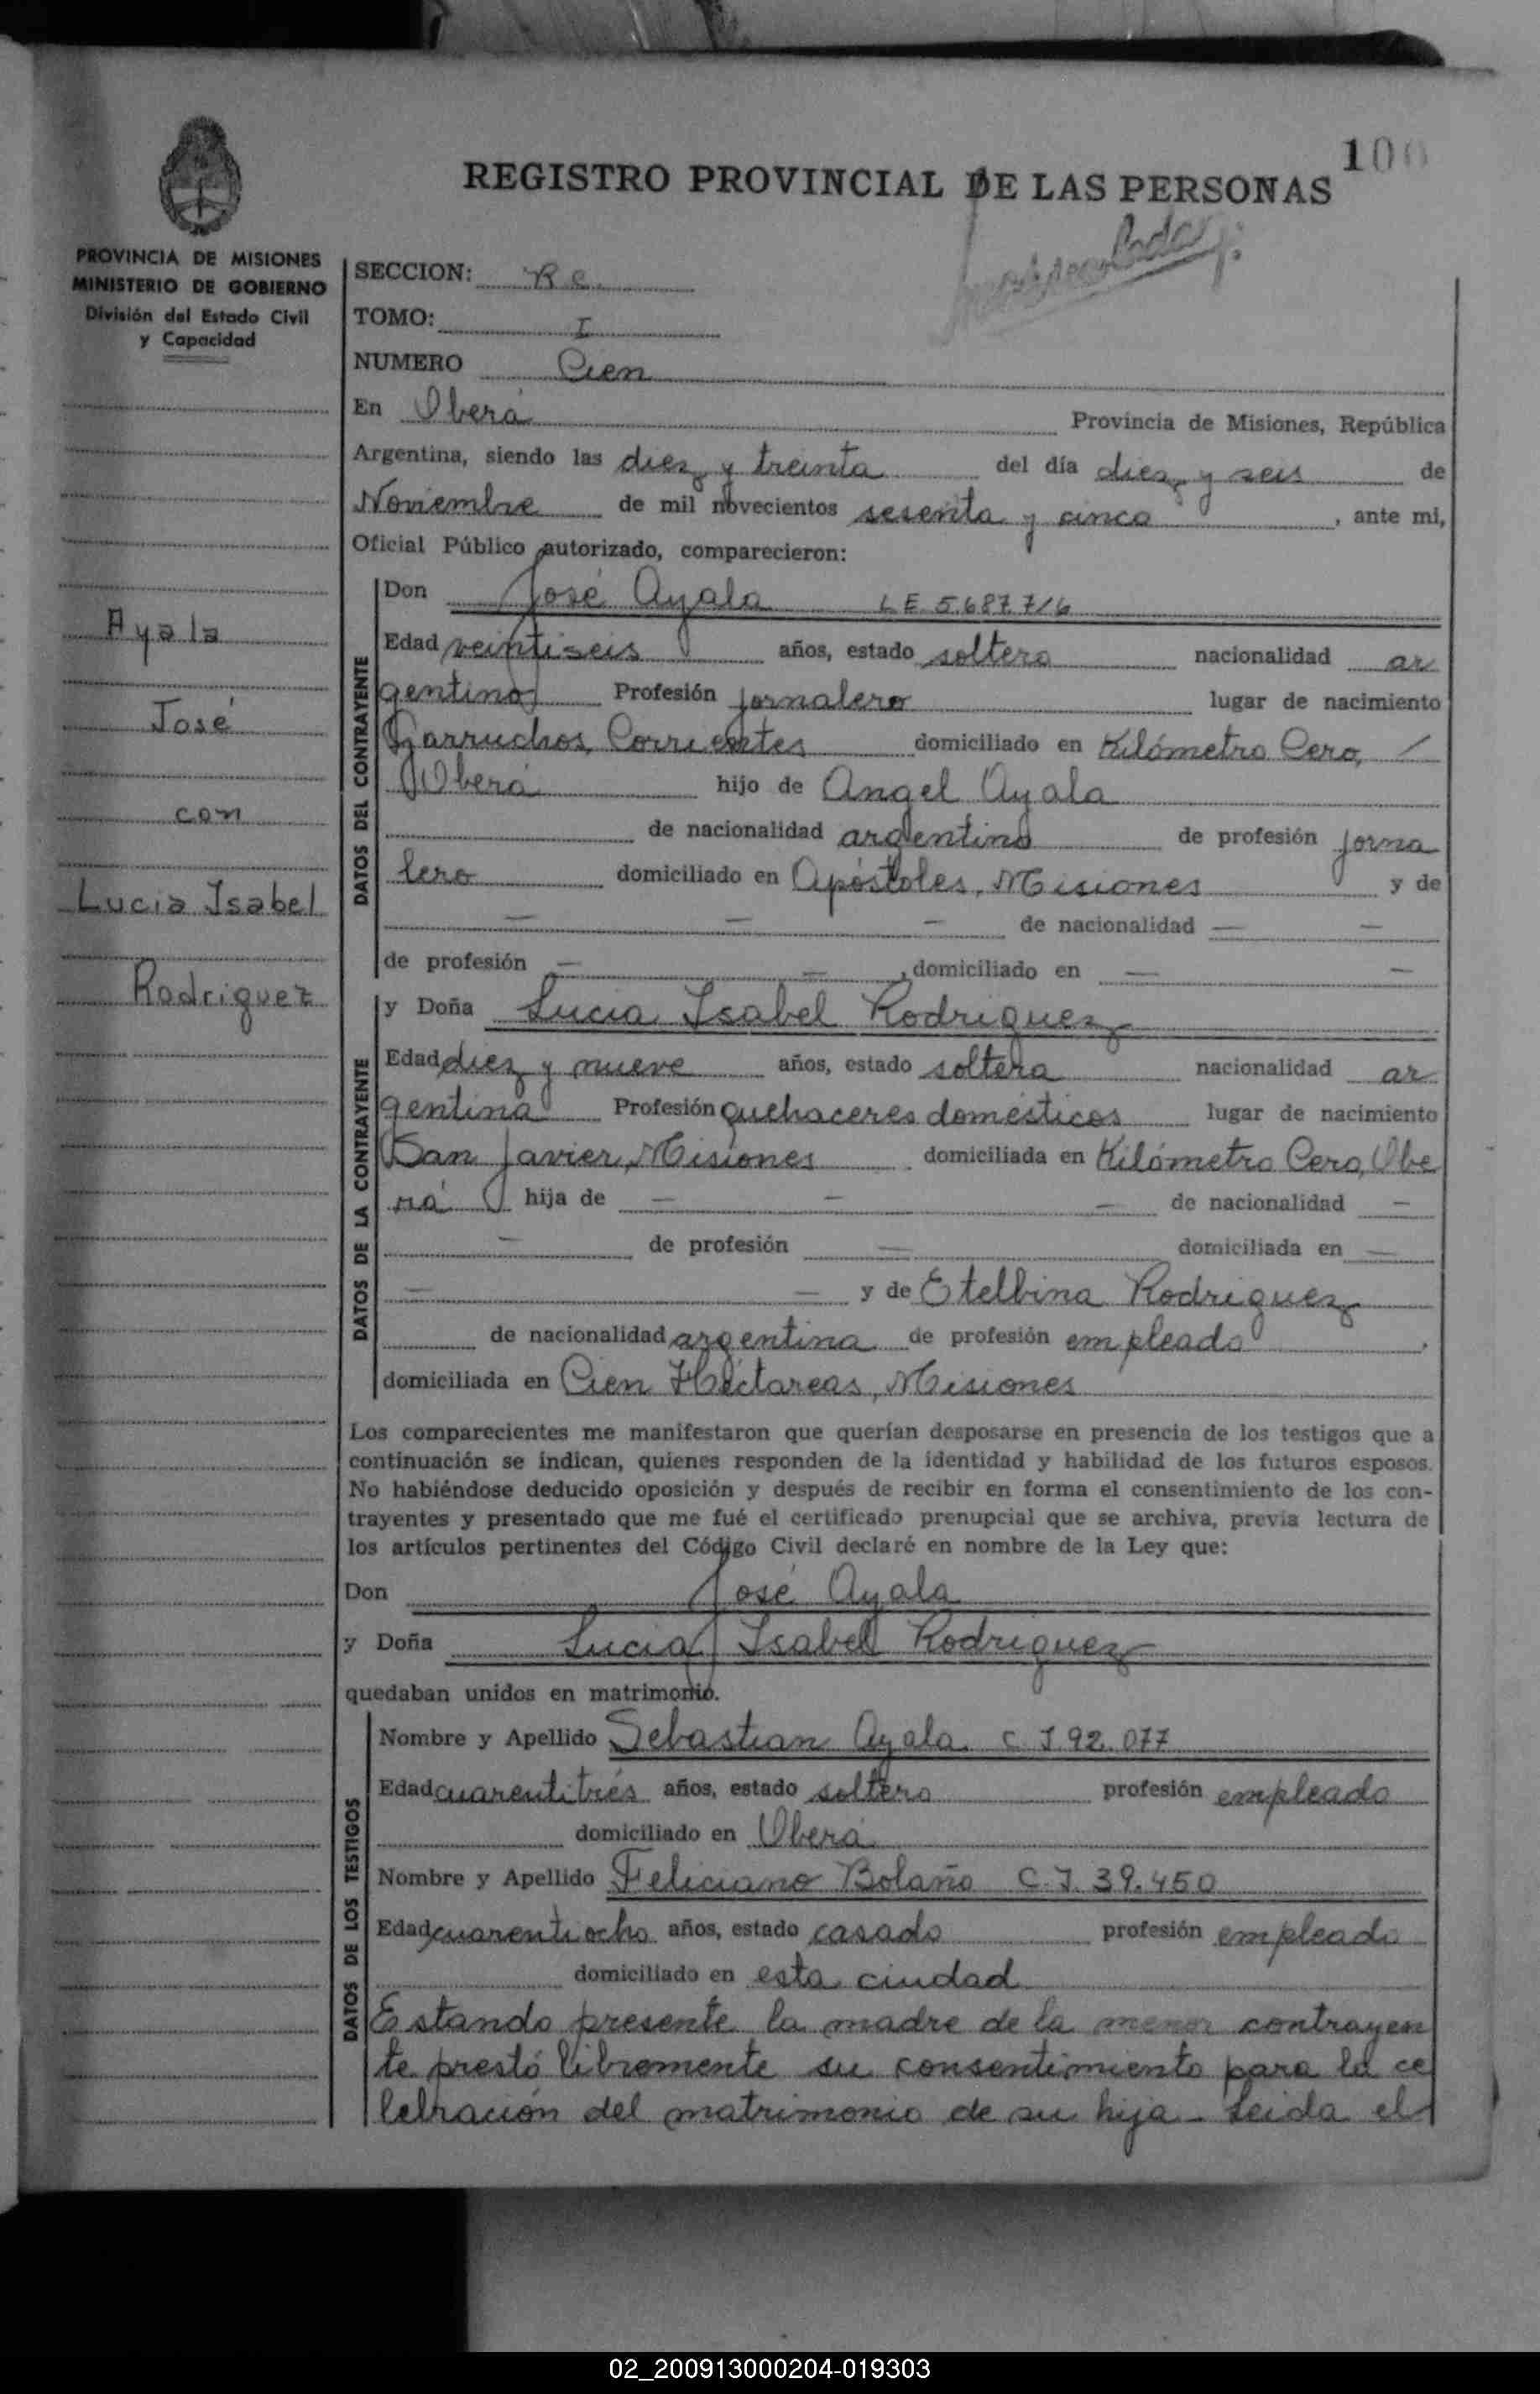 100
REGISTRO PROVINCIAL DE LAS PERSONAS
PROVINCIA DE MISIONES
MINISTERIO DE GOBIERNO
División del Estado Civil
y Capacidad
Ayala
José
con
Lucia Isabel
Rodriguez
SECCION: R C.
TOMO: I
NUMERO Cien
En Oberá Provincia de Misiones, República
Argentina, siendo las diez y treinta del día diez y seis de
Noviembre de mil novecientos sesenta y cinco, ante mi,
Oficial Público autorizado, comparecieron:
DATOS DEL CONTRAYENTE
Don José Ayala L E 5.687.716
Edad veintiseis años, estado soltero nacionalidad ar
gentino Profesión jornalero lugar de nacimiento
Garruchos, Corrientes domiciliado en Kilómetro Cero, /
Oberá hijo de Angel Ayala
de nacionalidad argentino de profesión jorna
lero domiciliado en Apóstoles, Misiones y de
— — — de nacionalidad — —
de profesión — —, domiciliado en — —
DATOS DE LA CONTRAYENTE
y Doña Lucia Isabel Rodriguez
Edad diez y nueve años, estado soltera nacionalidad ar
gentina Profesión quehaceres domésticos lugar de nacimiento
San Javier, Misiones domiciliada en Kilómetro Cero, Obe
rá hija de — — — de nacionalidad —
— de profesión — domiciliada en —
— — y de Etelbina Rodriguez
de nacionalidad argentina de profesión empleada,
domiciliada en Cien Hectareas, Misiones
Los comparecientes me manifestaron que querían desposarse en presencia de los testigos que a
continuación se indican, quienes responden de la identidad y habilidad de los futuros esposos.
No habiéndose deducido oposición y después de recibir en forma el consentimiento de los con-
trayentes y presentado que me fué el certificado prenupcial que se archiva, previa lectura de
los artículos pertinentes del Código Civil declaré en nombre de la Ley que:
Don José Ayala
y Doña Lucia Isabel Rodriguez
quedaban unidos en matrimonio.
DATOS DE LOS TESTIGOS
Nombre y Apellido Sebastian Ayala C I 92.077
Edad cuarentitrés años, estado soltero profesión empleado
domiciliado en Oberá
Nombre y Apellido Feliciano Bolaño C. I. 39.450
Edad cuarentiocho años, estado casado profesión empleado
domiciliado en esta ciudad
Estando presente la madre de la menor contrayen
te prestó libremente su consentimiento para la ce
lebración del matrimonio de su hija - Leida el
02_200913000204-019303